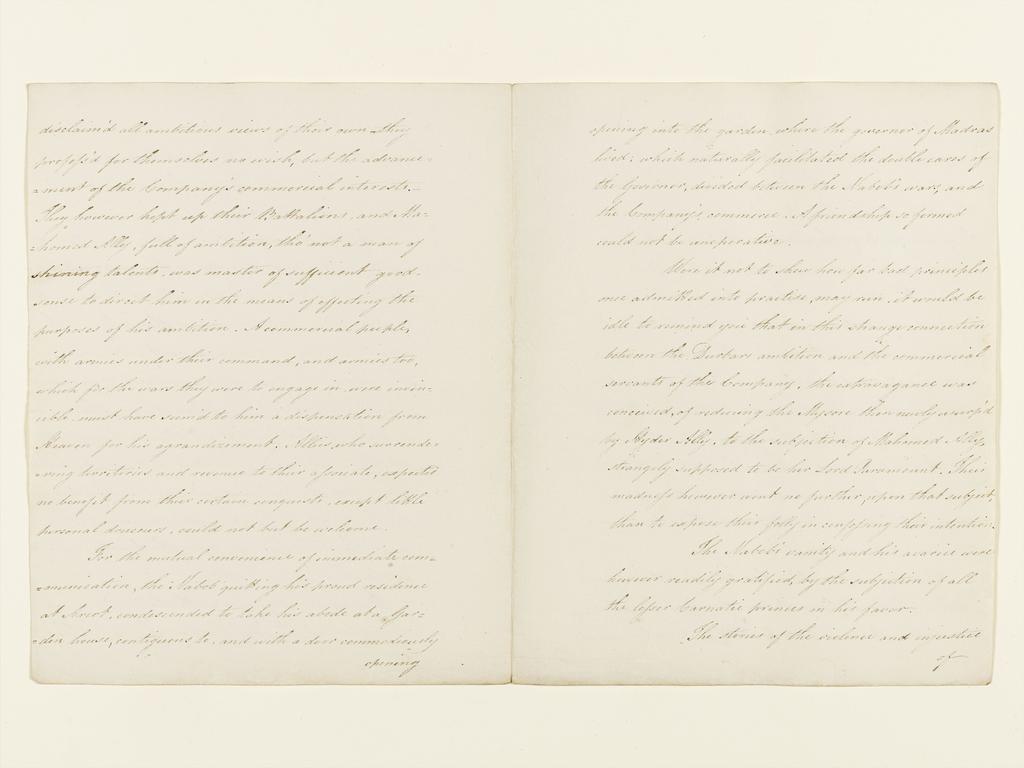 disclaim'd all ambitious views of their own. They
profess'd for themselves no wish, but the advance-
-ment of the Company's commercial interests.
They however kept up their Battalions, and Ma-
-homed Ally, full of ambition, tho' not a man of
shining talents, was master of sufficient good-
sense to direct him in the means of effecting the
purposes of his ambition. A commercial people,
with armies under their command, and armies too,
which for the wars they were to engage in, were invin-
-cible, must have seem'd to him a dispensation from
Heaven for his agrandizement. Allies, who surrende-
-ring territories and revenue to their associate, expected
no benefit from their certain conquests, except little
personal douceurs, could not but be welcome.
For the mutual convenience of immediate com-
-munication, the Nabob quitting his proud residence
at Arcot, condescended to take his abode at a Gar-
-den house, contiguous to, and with a door commodiously
opening
opening into the garden, where the governor of Madras
lived; which naturally facilitated the double cares of
the Governor, divided between the Nabob's wars, and
the Company's commerce. A friendship so formed
could not be inoperative.
Were it not to shew how far bad principles
once admitted into practise, may run, it would be
idle to remind you that in this strange connection
between the Durbars ambition and the commercial
servants of the Company, the extravagance was
conceived, of reducing the Mysore then newly usurp'd
by Hyder Ally, to the subjection of Mahomed Ally,
strangely supposed to be her Lord Paramount. Their
madness however went no further, upon that subject,
than to expose their folly in confessing their intention.
The Nabob's vanity and his avarice were
however readily gratified, by the subjection of all
the lesser Carnatic princes in his favor.
The stories of the violence and injustice
of